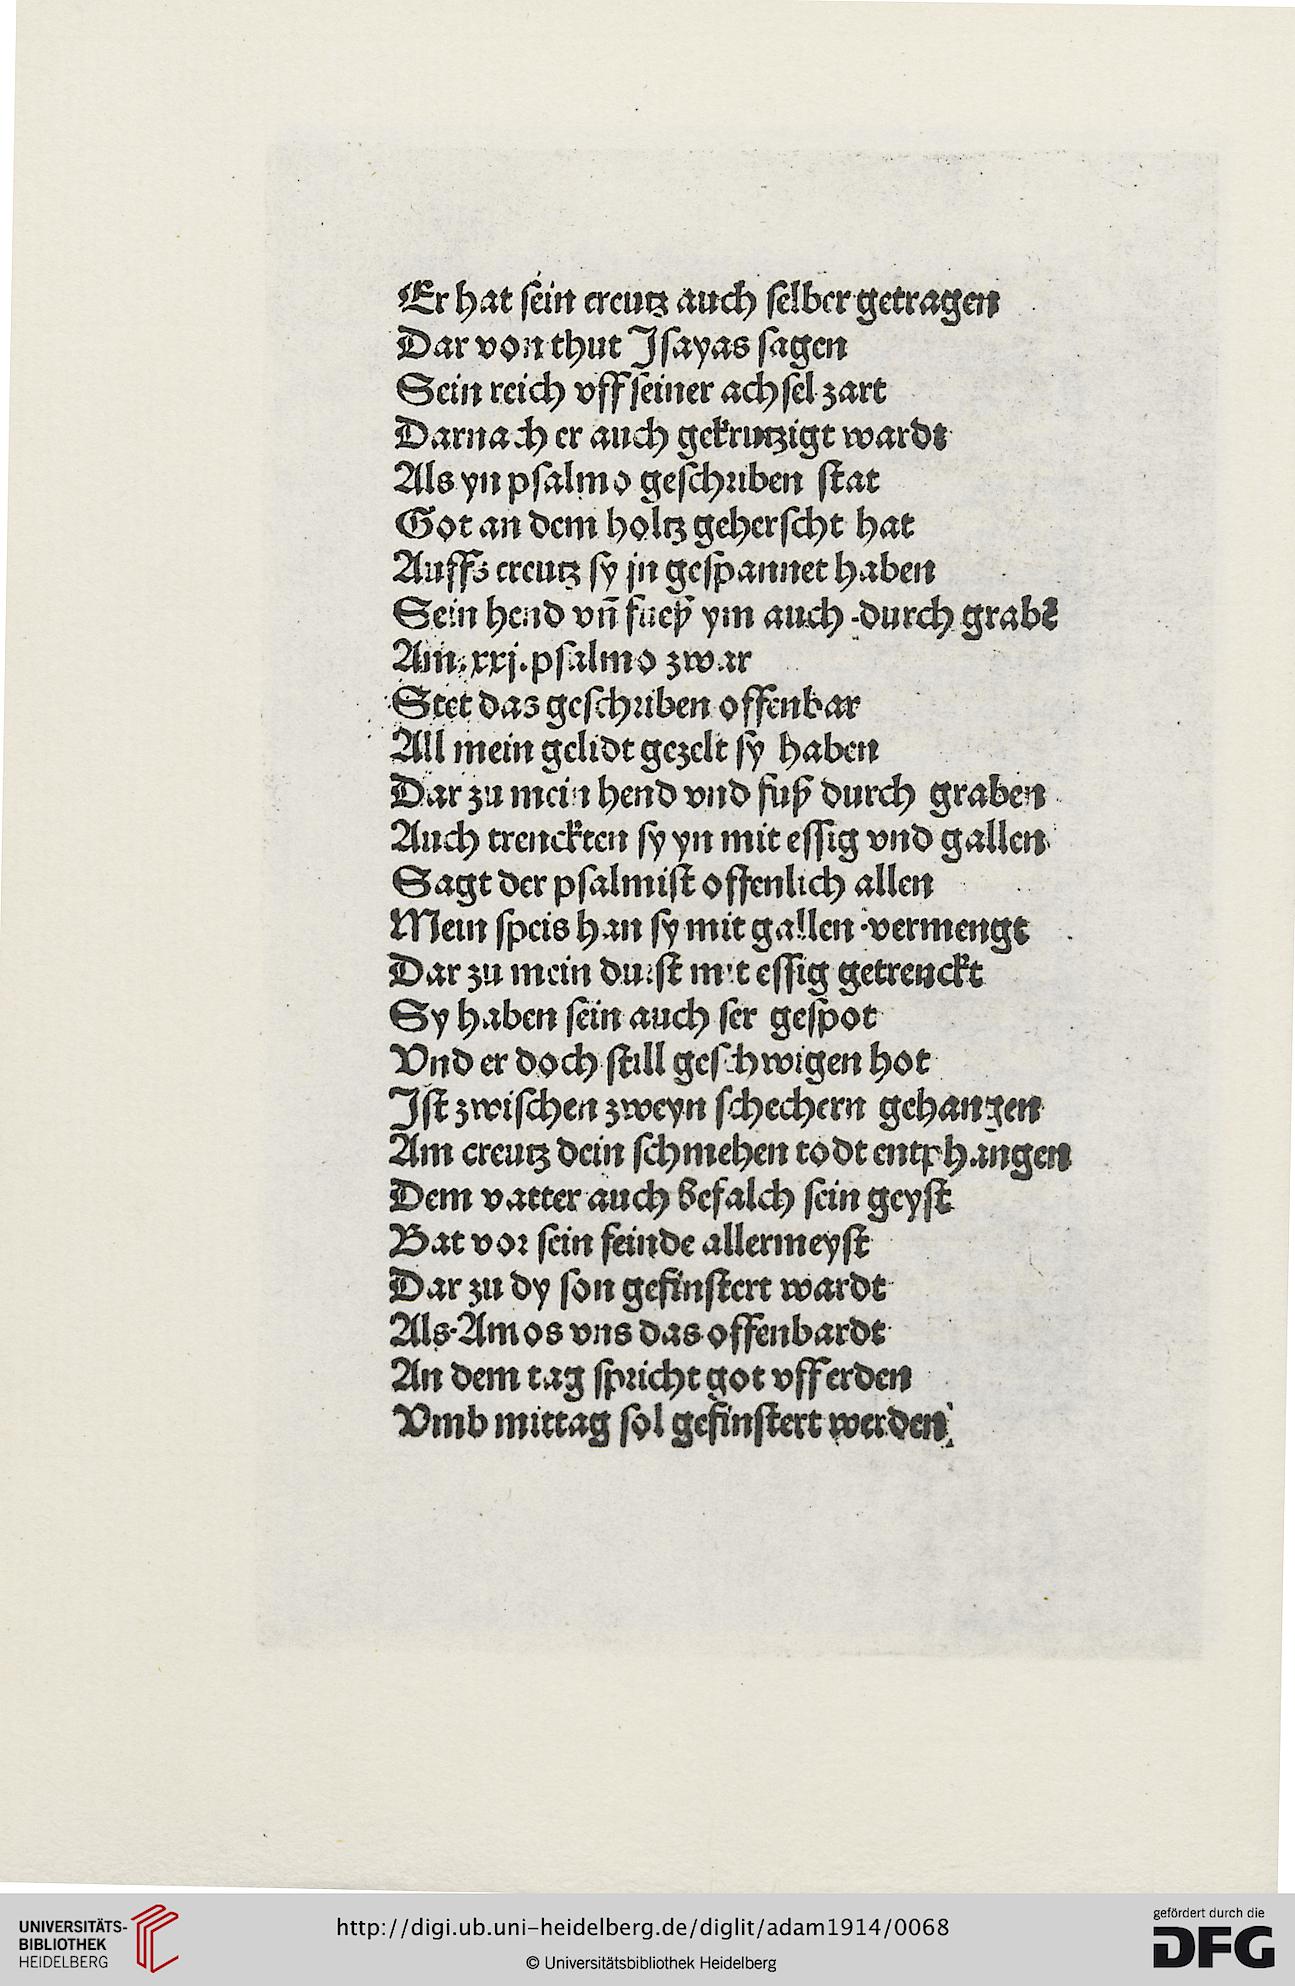 Er hat sein creutz auch selber getragen
Dar von thut Jsayas sagen
Sein reich vff seiner achsel zart
Darnach er auch gekrutzigt wardt
Als yn psalmo geschriben stat
Got an dem holtz geherscht hat
Auffs creutz sy jn gespannet haben
Sein hend vn̄ fueß ym auch durch grabē
Am. xxj. psalmo zwar
Stet das geschriben offenbar
All mein gelidt gezelt sy haben
Dar zu mein hend vnd fuß durch graben
Auch trenckten sy yn mit essig vnd gallen
Sagt der psalmist offenlich allen
Mein speis han sy mit gallen vermengt
Dar zu mein durst mit essig getrenckt
Sy haben sein auch ser gespot
Vnd er doch still geschwigen hot
Jst zwischen zweyn schechern gehangen
Am creutz dein schmehen todt entphangen
Dem vatter auch befalch sein geyst
Bat vor sein feinde allermeyst
Dar zu dy son gefinstert wardt
Als Amos vns das offenbardt
An dem tag spricht got vff erden
Vmb mittag sol gefinstert werden
UNIVERSITÄTS-
BIBLIOTHEK
HEIDELBERG
http://digi.ub.uni-heidelberg.de/diglit/adam1914/0068
© Universitätsbibliothek Heidelberg
gefördert durch die
DFG